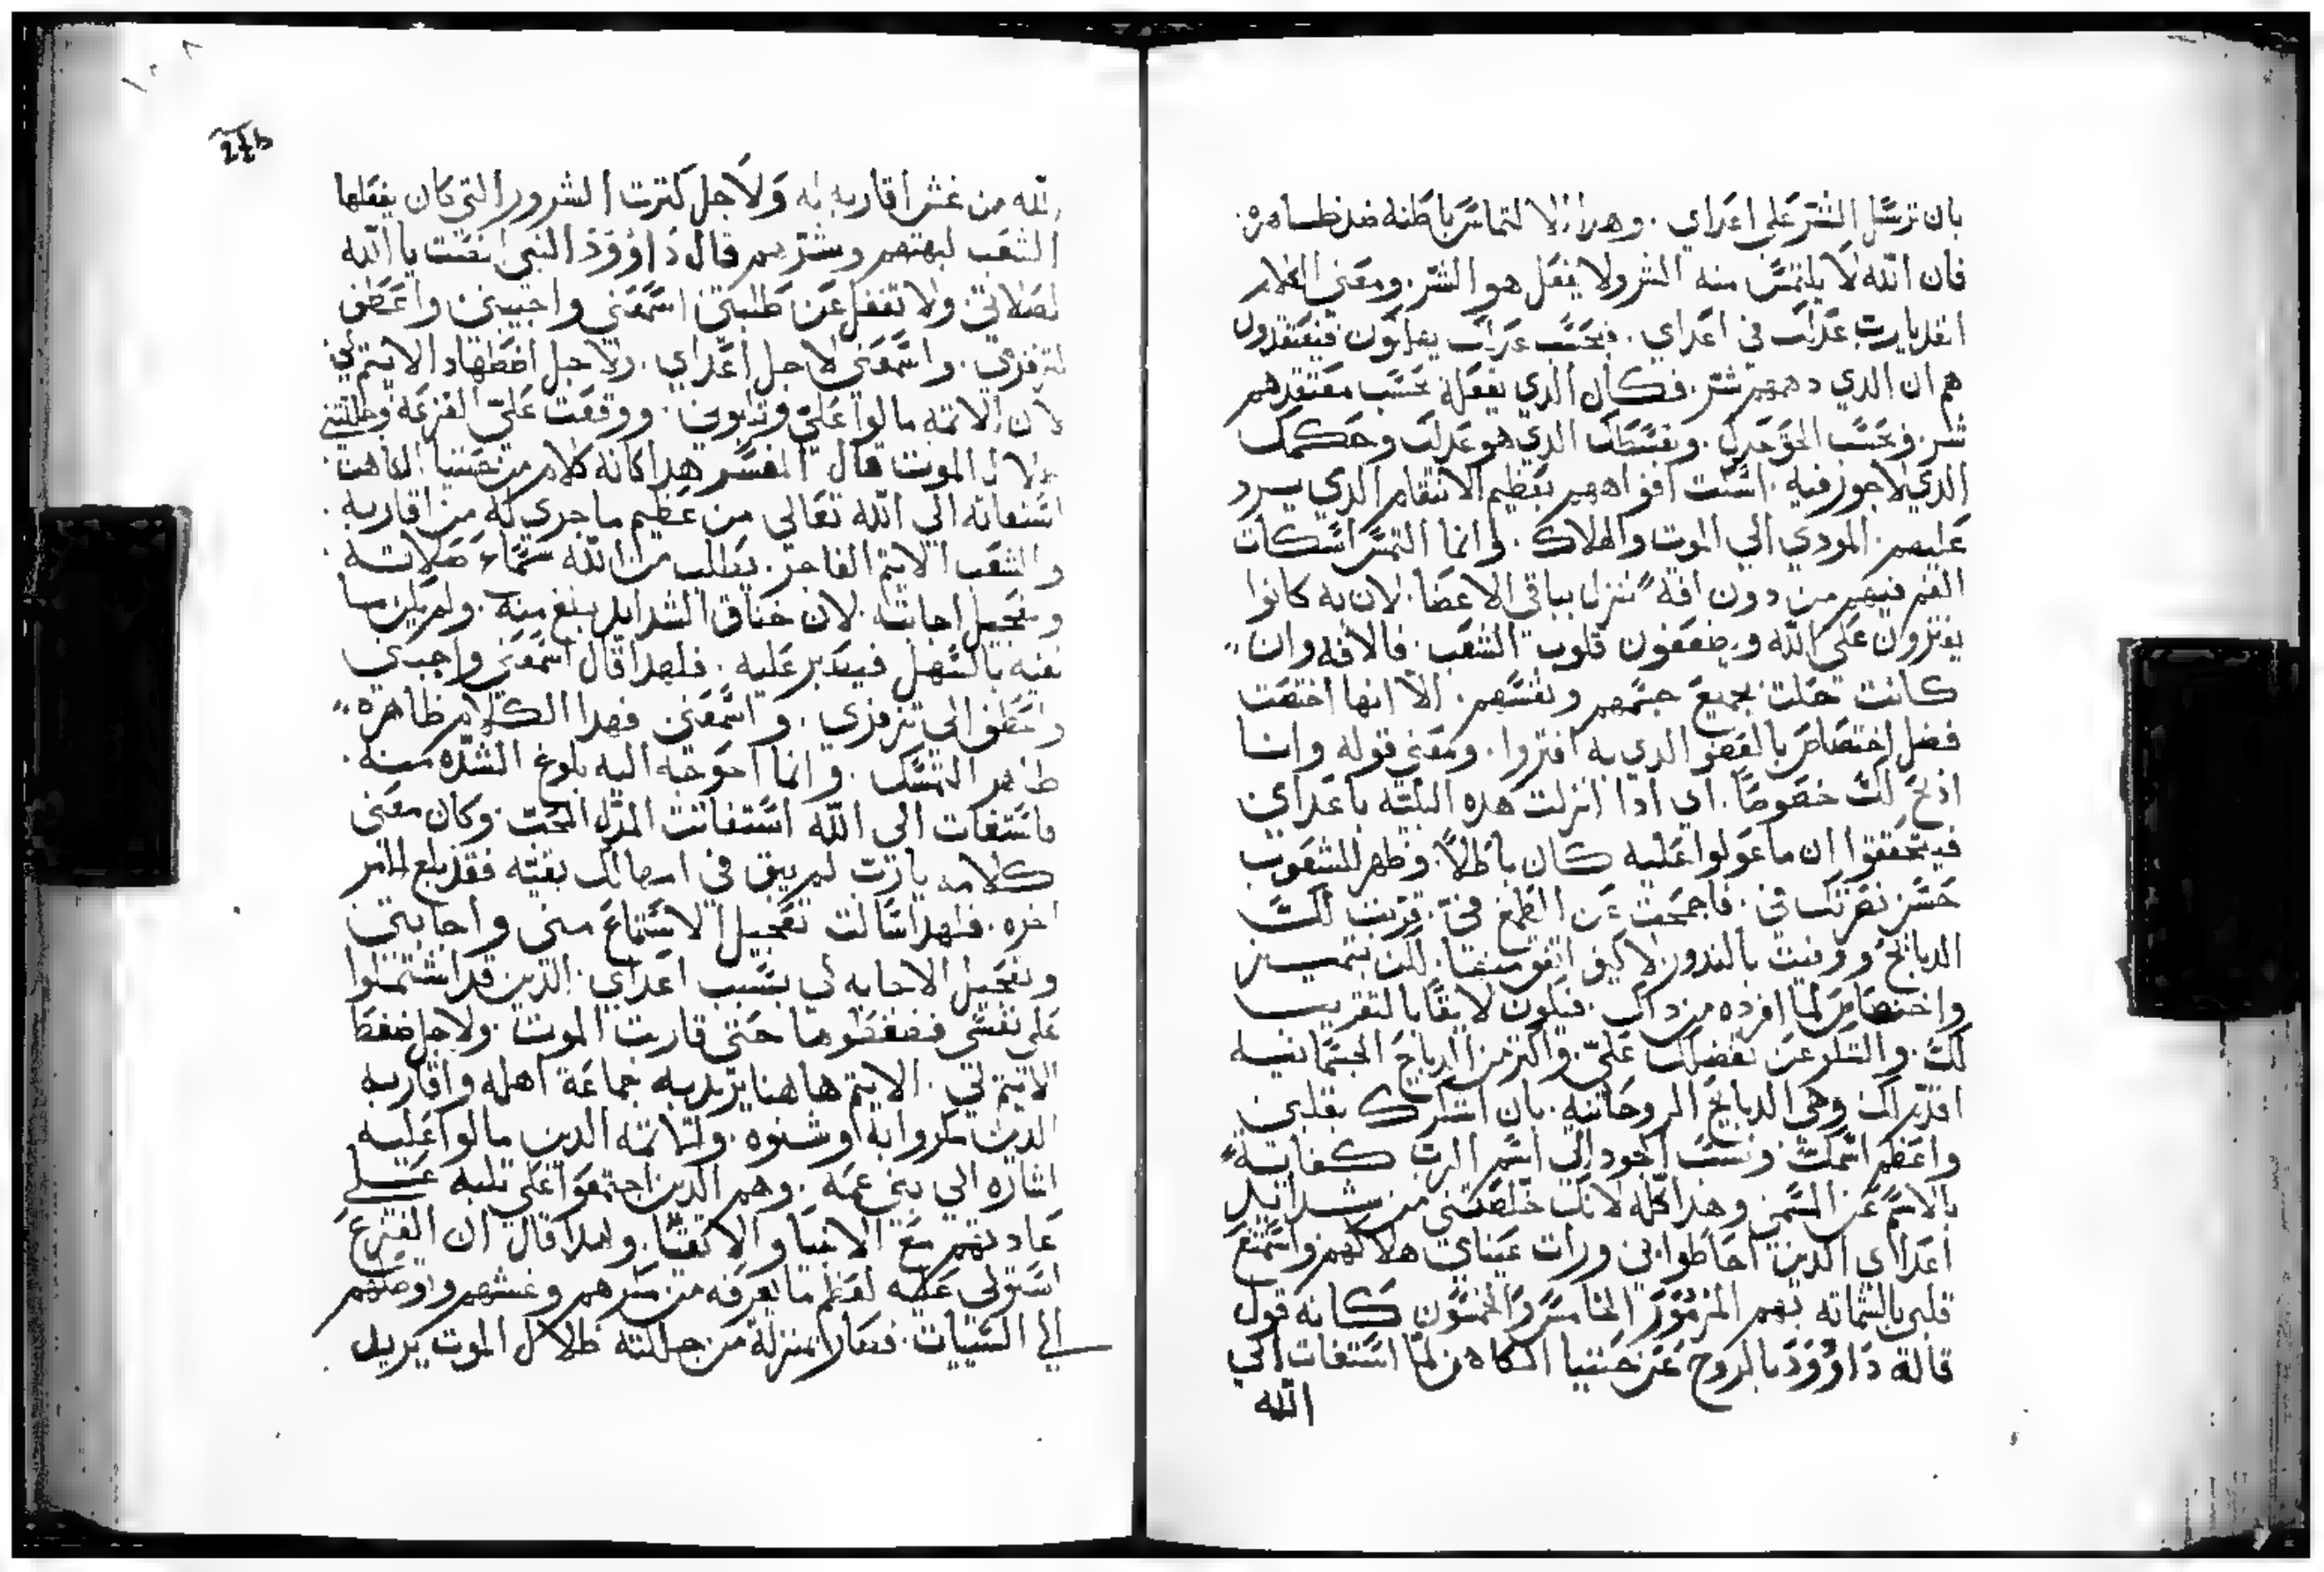 بان ترسل الشر على اعداي . وهدا الالتماس باطنه ضد ظاهره .
فان الله لا يلتمس منه الشر ولا يفعل هو الشر . ومعنى الكلام
انقد يارب عدلك في اعداي . فبحسب عدلك يعاقبون فيعتقدون
هم ان الدي دهمهم شر . فكان الدي يفعله بحسب معتقدهم
شر . وبحسب الحق عدل . وبقسطك الدي هو عدلك وحكمك
الدي لا جور فيه . اسكت افواههم بعظيم الانتقام الدي يرد
عليهم . المودي الي الموت والهلاك . وانما التمس اسكات
الفم فيهم من دون افة تنزل بباقي الاعضا . لان به كانوا
يفترون على الله ويضعفون قلوب الشعب . فالافه وان
كانت حلت بجميع جسمهم ونفسهم . الا انها اختصت
فضل اختصاص بالعضو الدي به افتروا . ومعنى قوله وانا
ادبح لك خصوصا . اي ادا انزلت هده البليه باعداي
فيتحققوا ان ما عولوا عليه كان باطلا . وظهر للشعوب
حسن نصرتك في . فاجمحت عن الطمع في . قربت لك
الدبايح ووفيت بالندور لا كيف اتفق لكن بتمييز
واختصاص لما افرده من داك . فيكون لايقا بالتقريب
لك . والشكر عن تفضلك علي . واكتر من الدبايح الجسمانيه
اقدم لك وهي الدبايح الروحانيه . بان اشكرك بقلبي
واعظم اسمك . ونسب الجود الي اسم الرب كفاية
بالاسم عن المسمى وهدا كله لانك خلصتني من شدايد
اعداي الدين احاطوا بي ورات عيناي هلاكهم واستمتع
قلبي بالشماته بهم المزمور الخامس والخمسون كانه قول
قاله داوود بالروح عن حننيا الكاهن لما استغات الي
الله
الله من غش اقاربه له ولاجل كترت الشرور التي كان يفعلها
الشعب لبهتهم وشرهم قال داوود النبي انصت يا الله
لصلاتي ولا تغفل عن طلبتي اسمعني واجيبني واعطف
لتزفري . واسمعني لاجل اعداي . ولاجل اضطهاد الايتم لي
لان الاتمه مالوا علي وتابوني . ووقعت علي الفزعه وجللتني
ظلال الموت قال المفسر هدا كانه كلام من حننيا الكاهن
استغاته الي الله تعالي من عظيم ما جري له من اقاربه .
والشعب الايتم الفاجر . يطلب من الله سماء صلاته
وتعجيل اجابته . لان خناق الشدايد بلغ منه . ولم يكن ما
نفيه بالسهل فيصبر عليه . فلهدا قال اسمعني واجيبني
واعطف الي تزفري . واسمعني فهدا الكلام ظاهره
ظاهر التمسك . وانما احوجه اليه بلوغ الشده منه .
فاستغات الي الله استغاتت المدله البحت . وكان معنى
كلامه يارب لم يبق في امهالك بقيه فقد بلغ الامر
اخره . فلهدا سالت تعجيل الاستماع مني واجابتي
وتعجيل الاجابه لي بسبب اعداي . الدين قد اشتملوا
على نفسي فضغطوها حتى قاربت الموت . ولاجل ضغط
الايتم لي . الايتم هاهنا يريد به جماعة اهله واقاربه
الدين مكروا به اوشنوه . والاتمه الدين مالوا عليه
اشاره الي بني عمه . وهم الدين اجتمعوا على تلبه على
عادتهم مع الانبيا والاتقيا . ولهدا قال ان الفزع
استولى عليه لعظم ما يعرفه من شرهم وغشهم واوصلهم
الي السيات . فصار بمنزلة من جللته ظلال الموت يريد